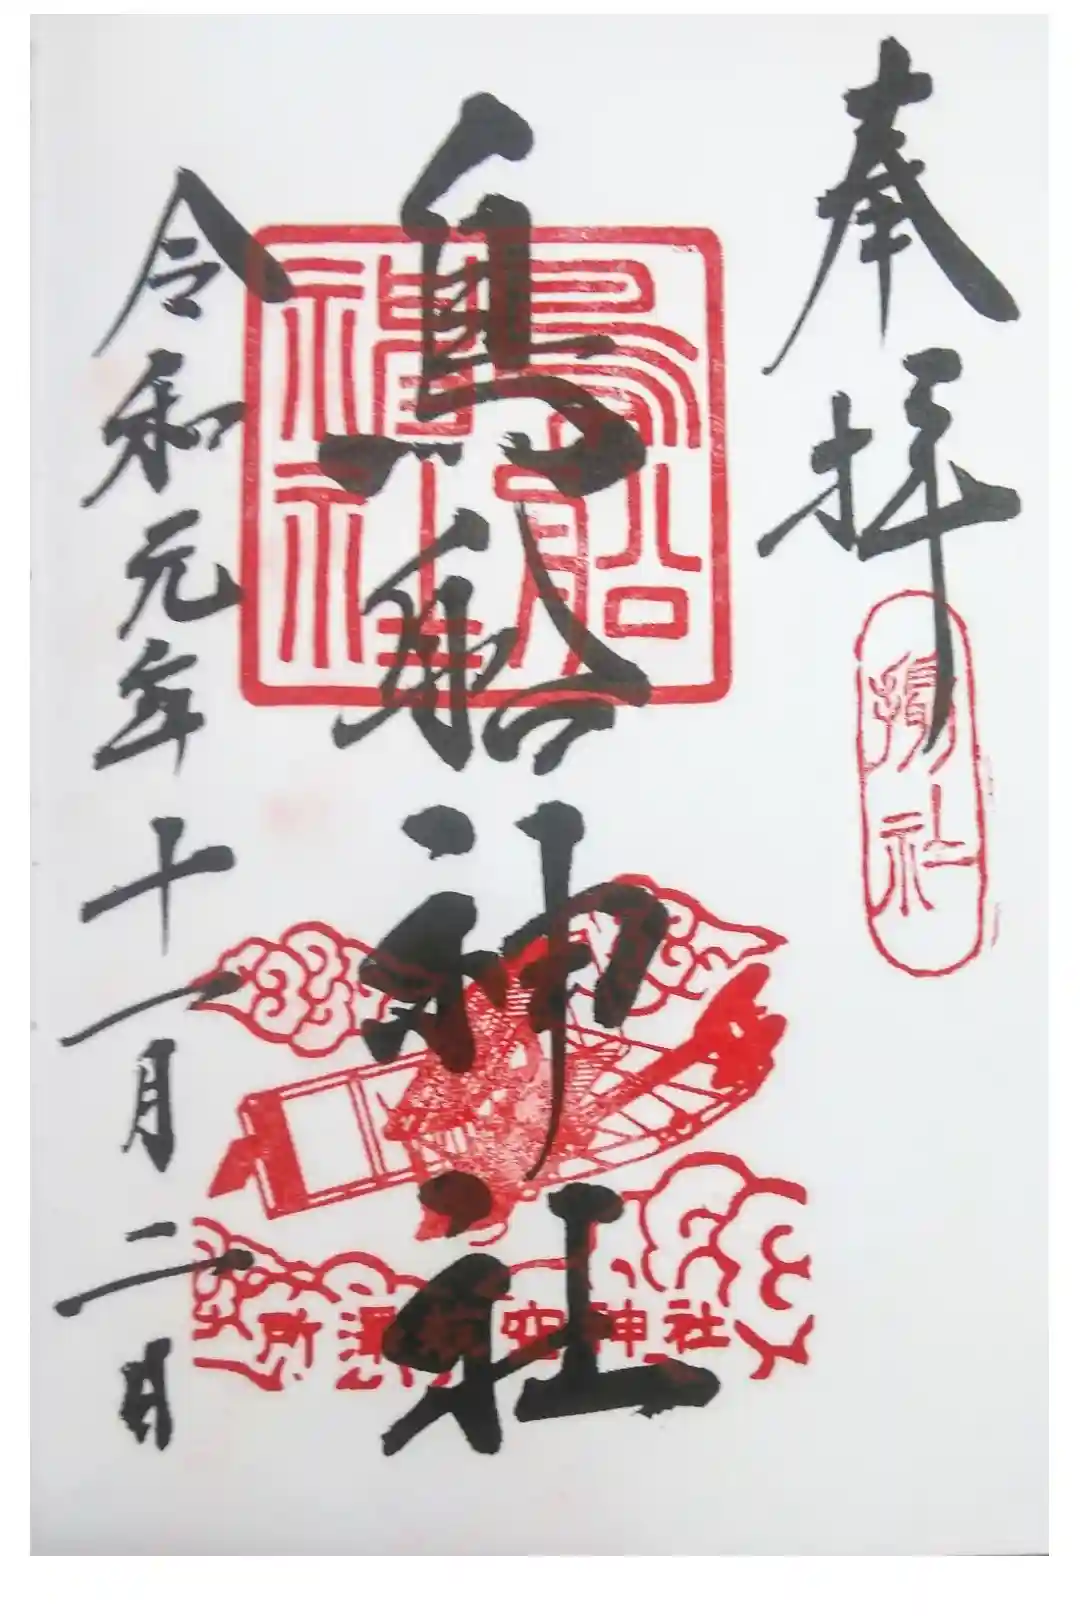 奉拝
攝社
鳥船神社
鳥船神社
所澤航空神社
令和元年十一月二日